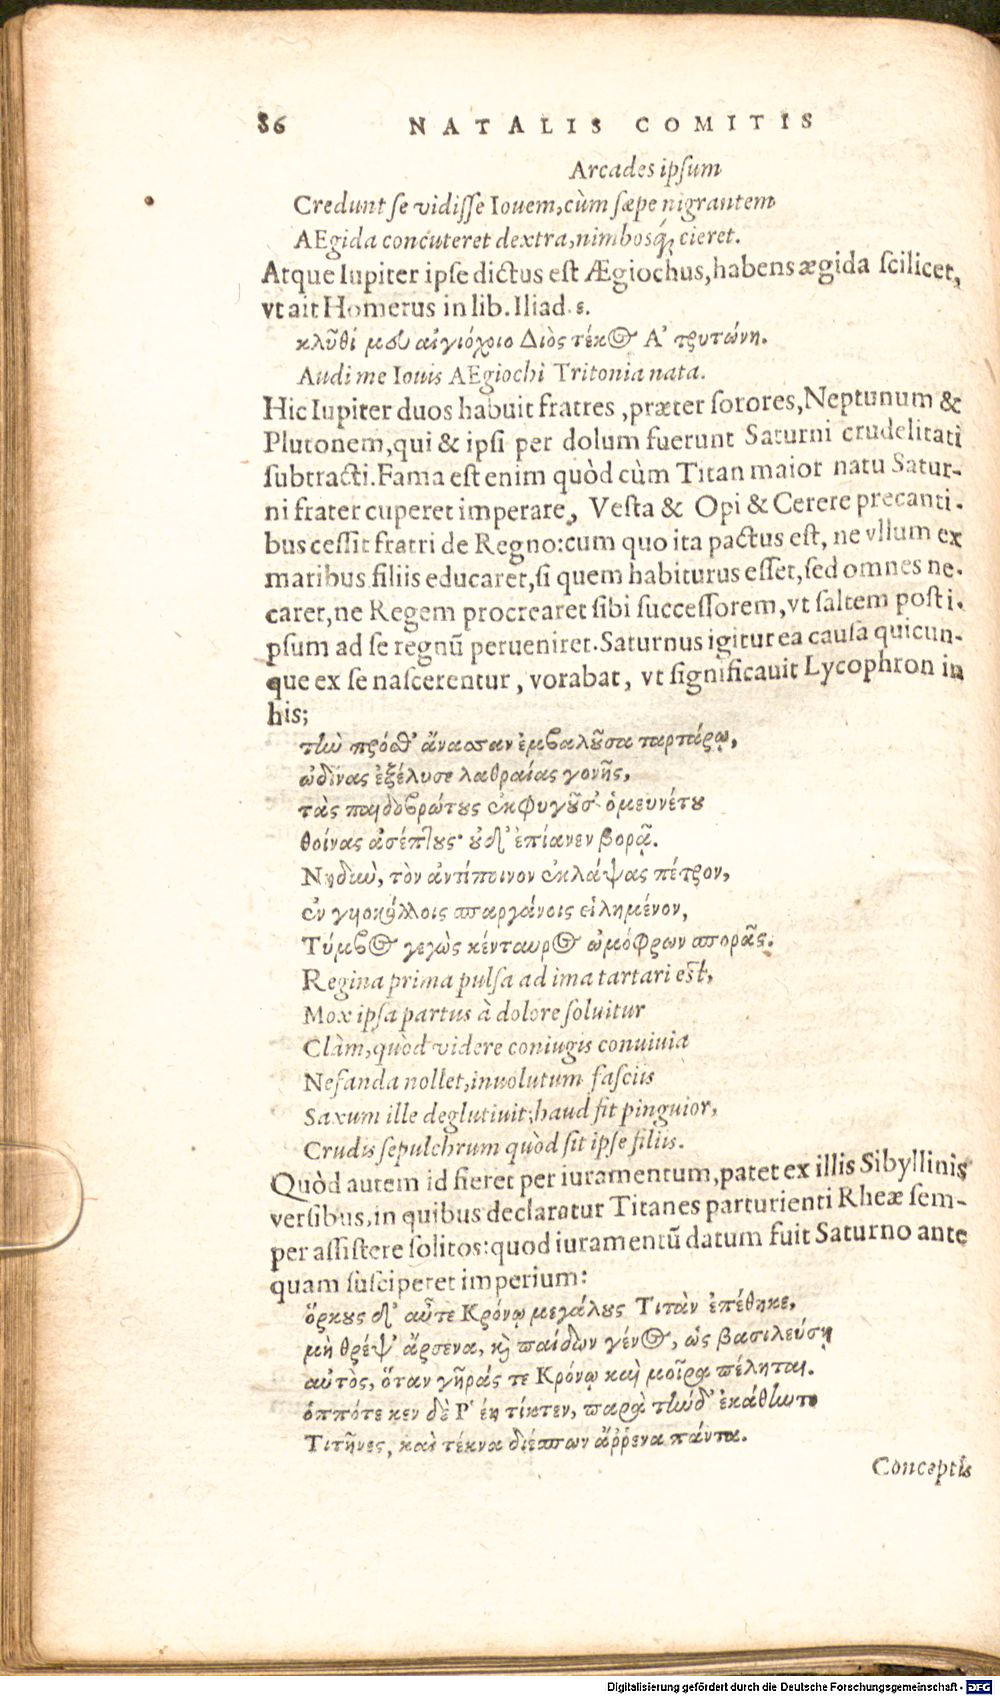 86 NATALIS COMITIS
Arcades ipsum
Credunt se vidisse Iouem, cùm sæpe nigrantem
AEgida concuteret dextra, nimbosq́; cieret.
Atque Iupiter ipse dictus est Ægiochus, habens ægida scilicet,
vt ait Homerus in lib. Iliad. ε.
κλῦθί μου αἰγιόχοιο Διὸς τέκος Ἀτρυτώνη.
Audi me Iouis AEgiochi Tritonia nata.
Hic Iupiter duos habuit fratres, præter sorores, Neptunum &
Plutonem, qui & ipsi per dolum fuerunt Saturni crudelitati
subtracti. Fama est enim quòd cùm Titan maior natu Satur-
ni frater cuperet imperare, Vesta & Opi & Cerere precanti-
bus cessit fratri de Regno: cum quo ita pactus est, ne vllum ex
maribus filiis educaret, si quem habiturus esset, sed omnes ne-
caret, ne Regem procrearet sibi successorem, vt saltem post i-
psum ad se regnũ perueniret. Saturnus igitur ea causa quicun-
que ex se nascerentur, vorabat, vt significauit Lycophron in
his;
τὴν πρόσθ' ἄνασσαν ἐμβαλοῦσα ταρτάρῳ,
ὠδῖνας ἐξέλυσε λαθραίας γονῆς,
τὰς παιδοβρώτους ἐκφυγοῦσ' ὁμευνέτου
θοίνας ἀσέπτους· οὐδ' ἐπίανεν βορᾷ.
Νηδὺν, τὸν ἀντίποινον ἐκλάψας πέτρον,
ἐν γυιοκόλλοις σπαργάνοις εἰλημένον,
Τύμβος γεγὼς κένταυρος ὠμόφρων σπορᾶς.
Regina prima pulsa ad ima tartari est,
Mox ipsa partus à dolore soluitur
Clàm, quòd videre coniugis conuiuia
Nefanda nollet, inuolutum fasciis
Saxum ille deglutiuit, haud fit pinguior,
Crudis sepulchrum quòd sit ipse filiis.
Quòd autem id fieret per iuramentum, patet ex illis Sibyllinis
versibus, in quibus declaratur Titanes parturienti Rheæ sem-
per assistere solitos: quod iuramentũ datum fuit Saturno ante
quam susciperet imperium:
ὅρκους δ' αὖτε Κρόνῳ μεγάλους Τιτὰν ἐπέθηκε,
μὴ θρέψ' ἄρσενα, καὶ παίδων γένος, ὡς βασιλεύσῃ
αὐτὸς, ὅταν γῆράς τε Κρόνῳ καὶ μοῖρα πέληται.
ὁππότε κεν δὲ Ῥέη τίκτεν, παρὰ τήνδ' ἐκάθηντο
Τιτῆνες, καὶ τέκνα διέσπων ἄῤῥενα πάντα.
Conceptis
Digitalisierung gefördert durch die Deutsche Forschungsgemeinschaft - DFG